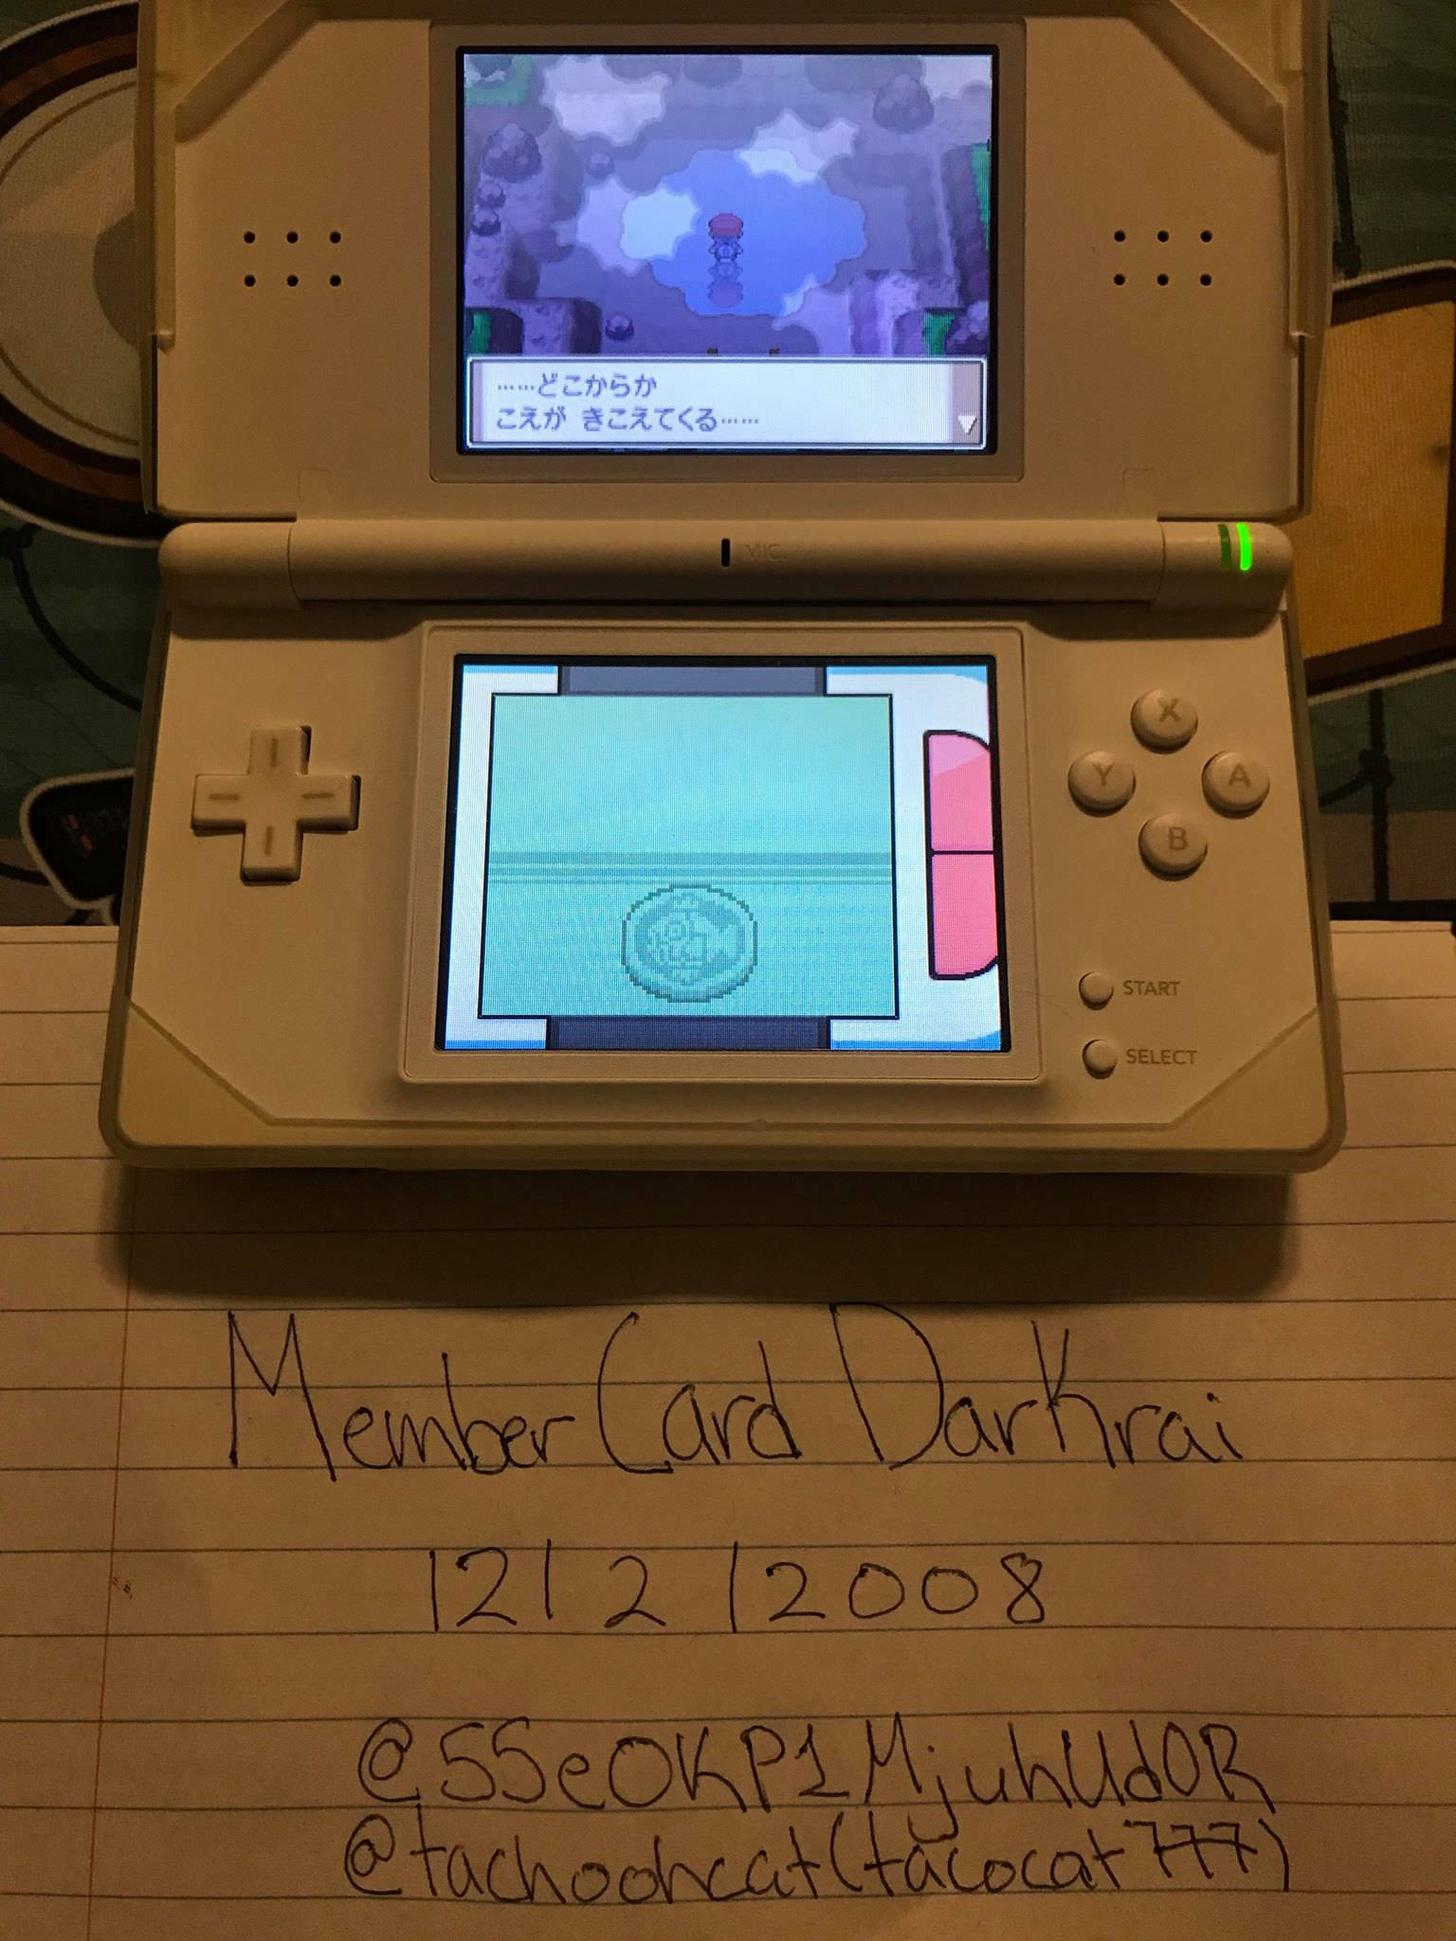 ……どこからか
こえが きこえてくる……
MIC.
X
Y
A
B
START
SELECT
Member Card Darkrai
12/2/2008
@SSeOKP1MjuhUdOR
@tachoohcat(tacocat777)